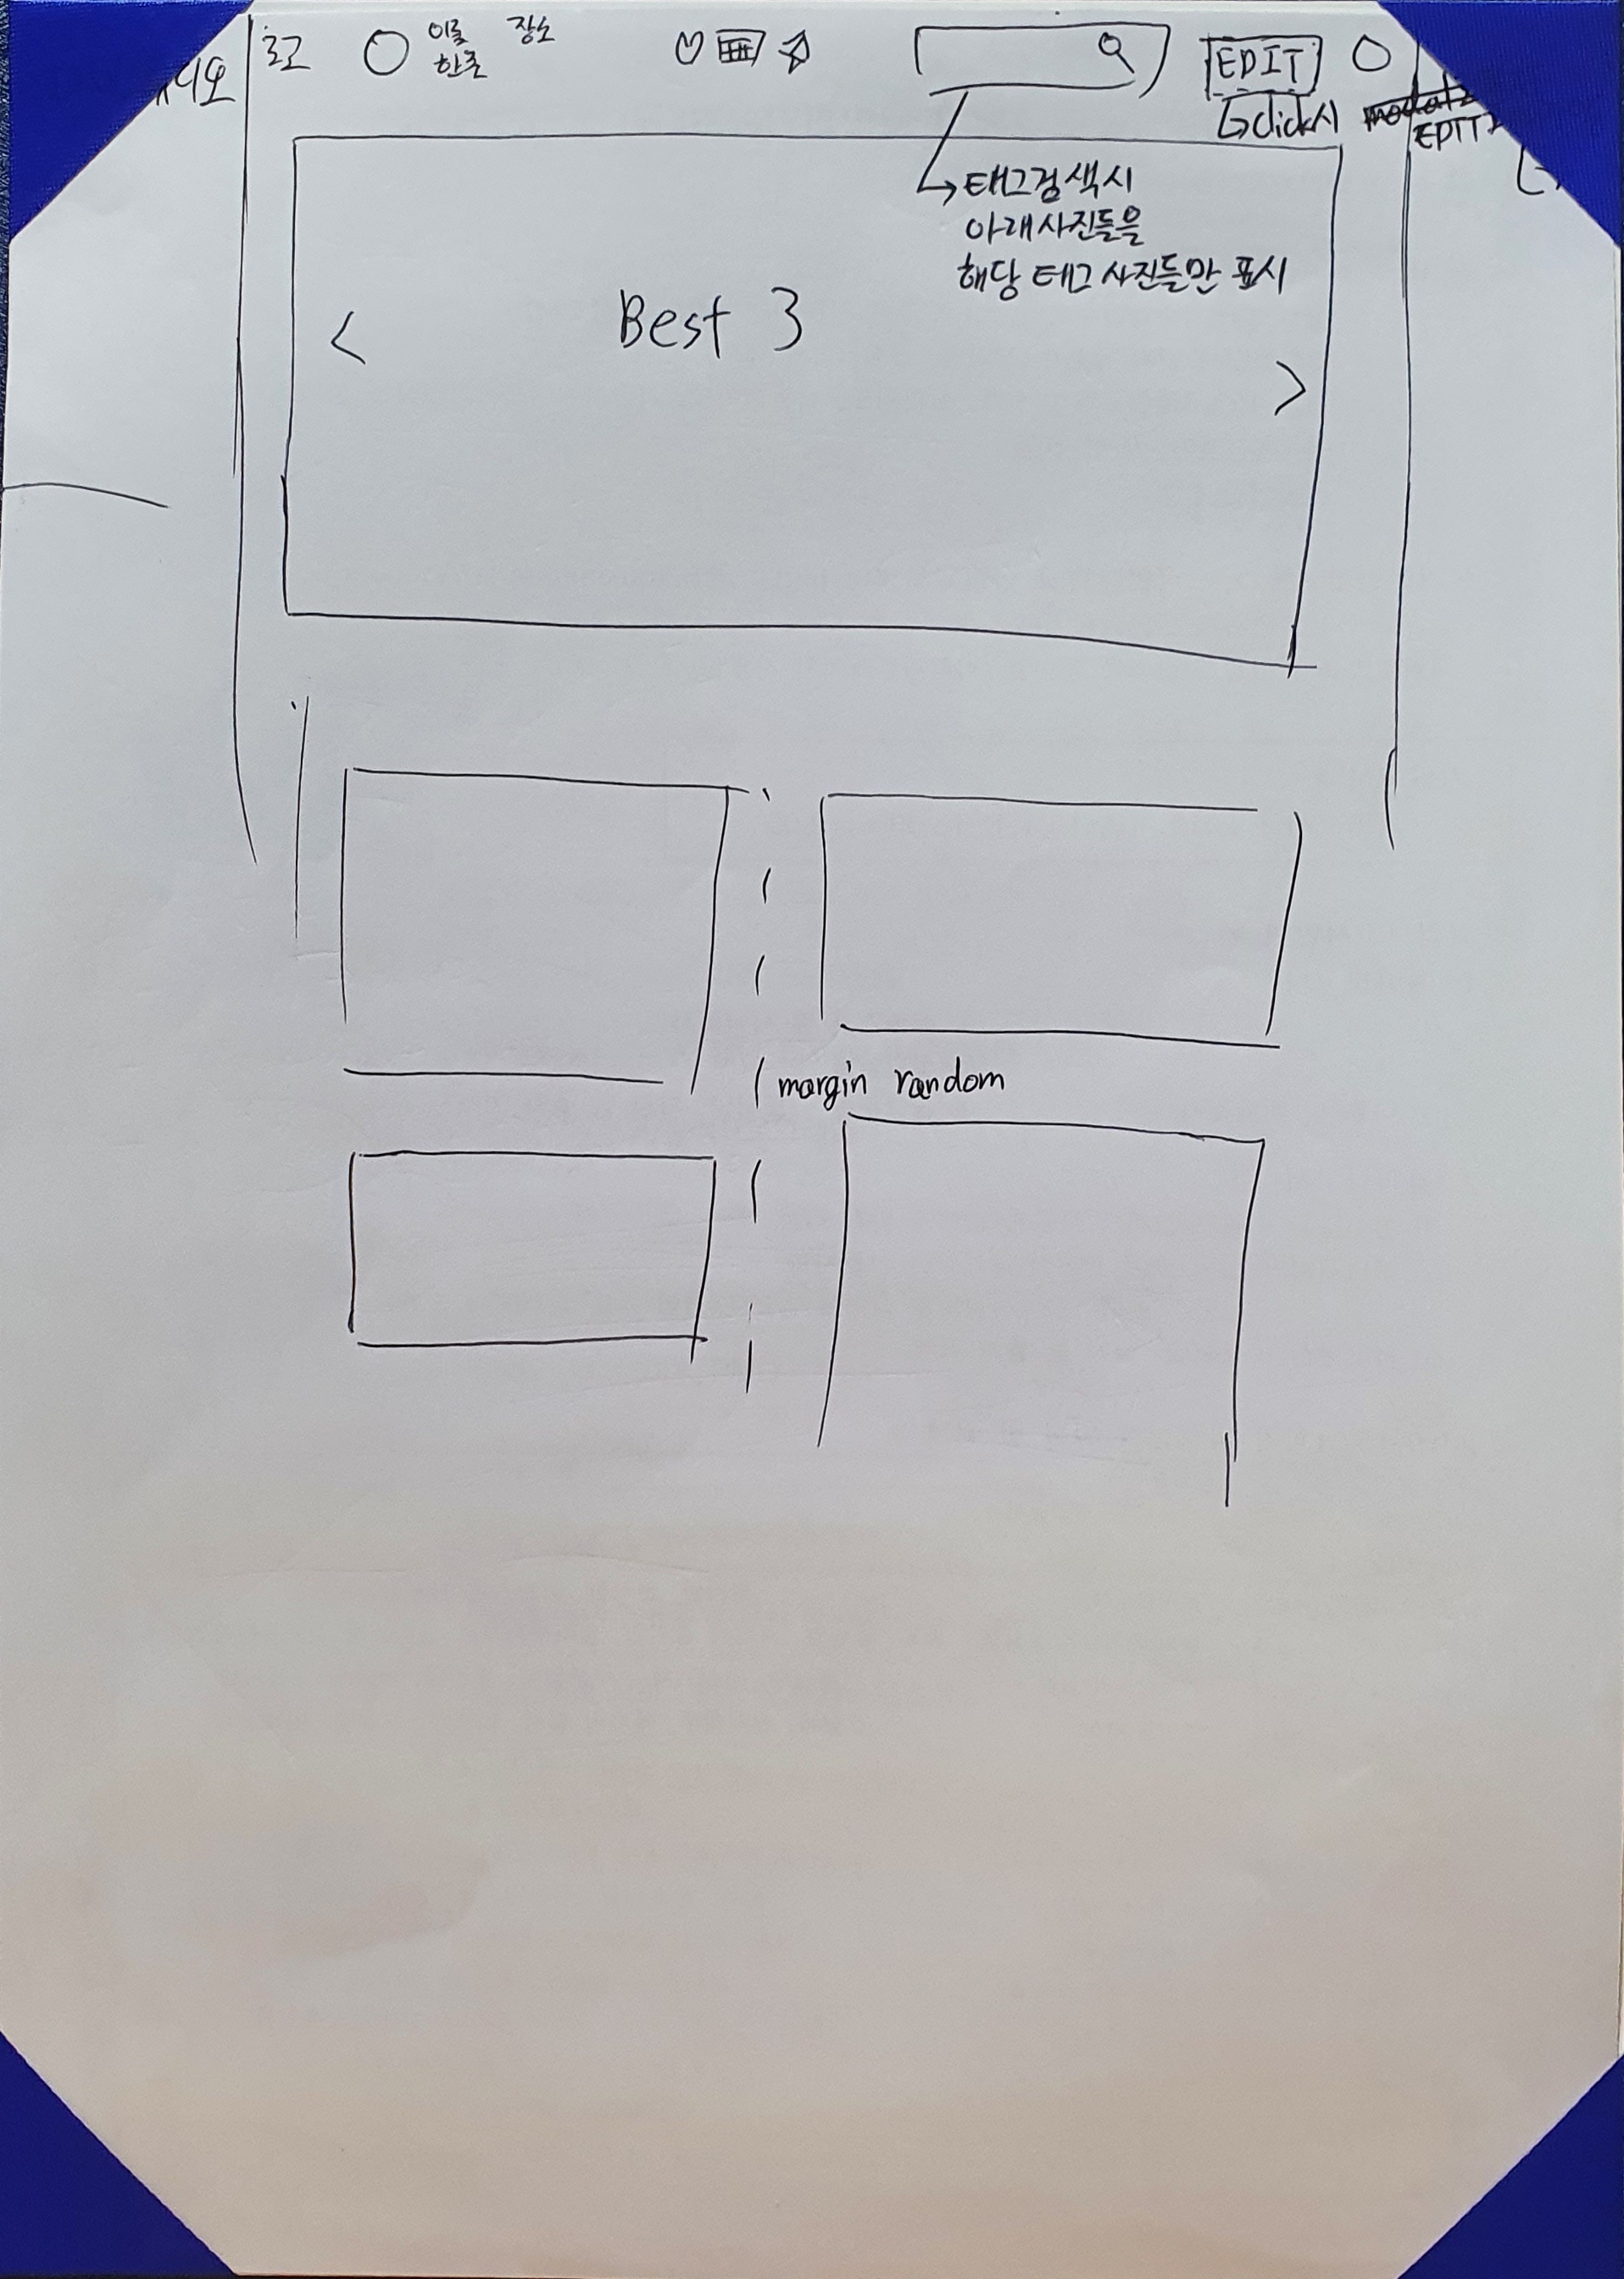 로고
이름 장소
한줄
EDIT
click시
EDIT
태그검색시
아래사진들을
해당 태그 사진들만 표시
< Best 3 >
margin random